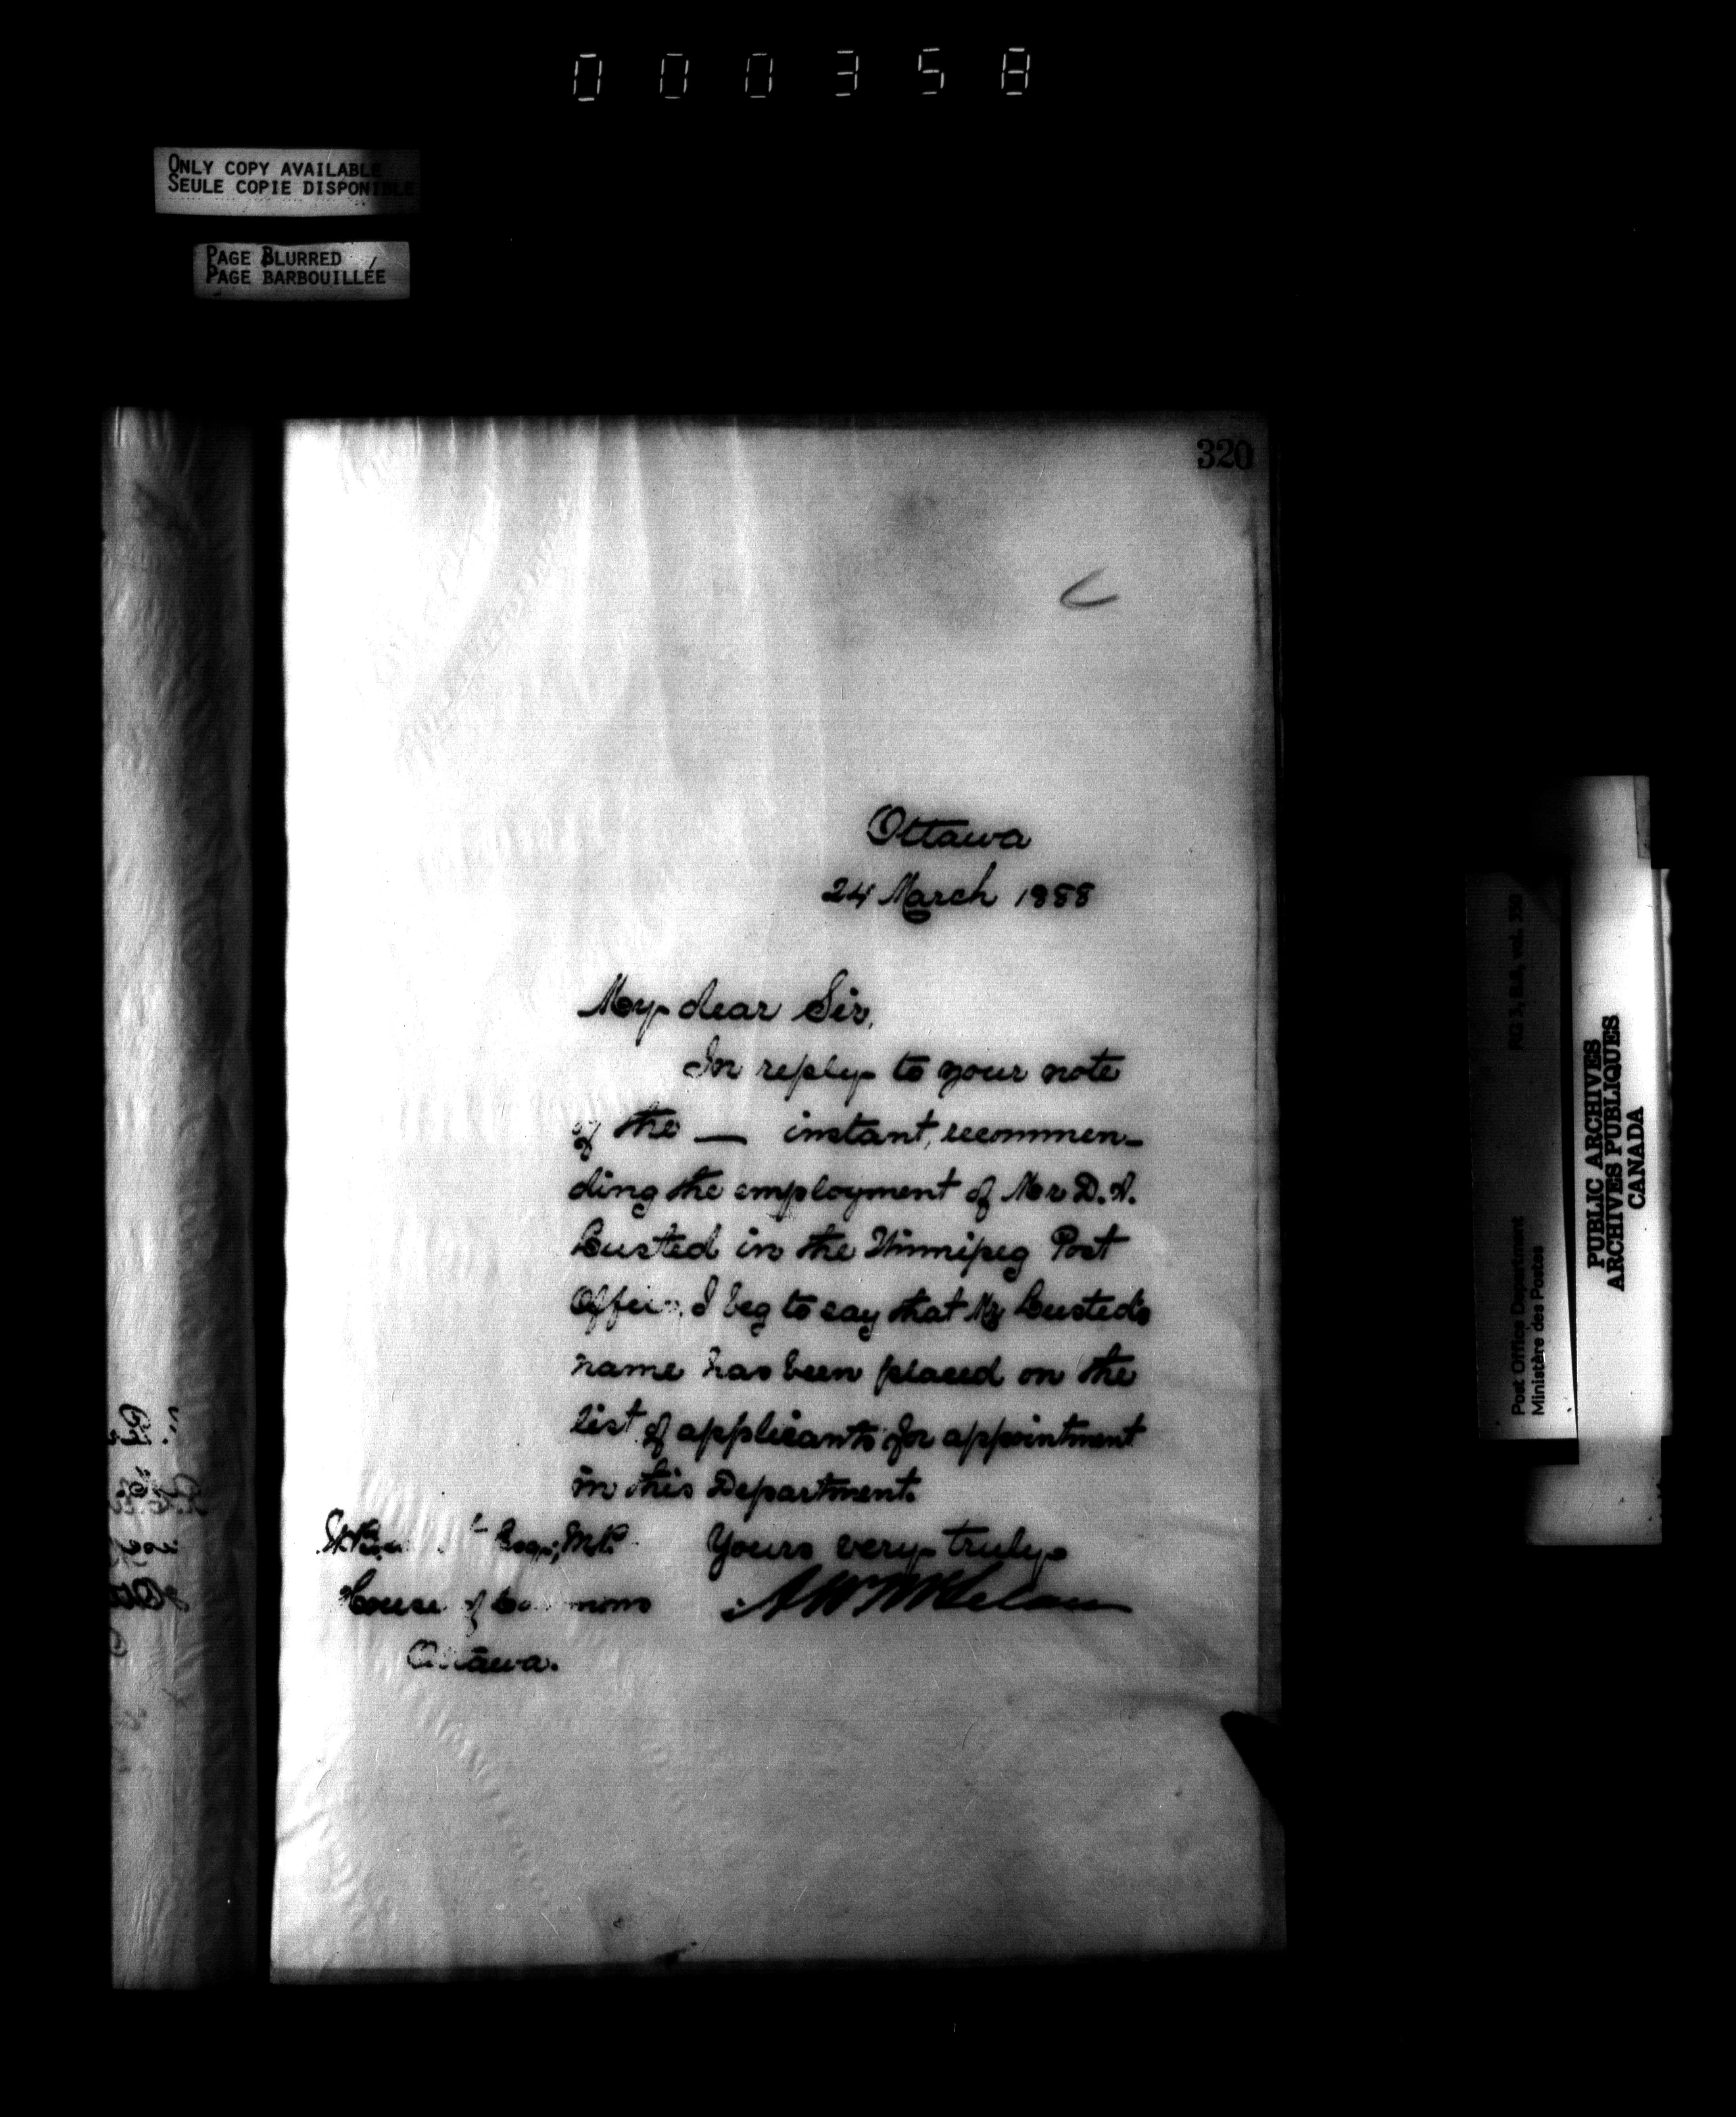 000358
ONLY COPY AVAILABLE
SEULE COPIE DISPONIBLE
PAGE BLURRED
PAGE BARBOUILLÉE
320
Ottawa
24 March 1888
My dear Sir,
In reply to your note
of the — instant, recommen-
ding the employment of Mr D. A.
Lusted in the Winnipeg Post
Office, I beg to say that Mr Lusted's
name has been placed on the
list of applicants for appointment
in this Department.
Yours very truly
Esqr, M.P.
House of Commons
Ottawa.
A W McLelan
RG 3, B.A, vol. 330
Post Office Department
Ministère des Postes
PUBLIC ARCHIVES
ARCHIVES PUBLIQUES
CANADA